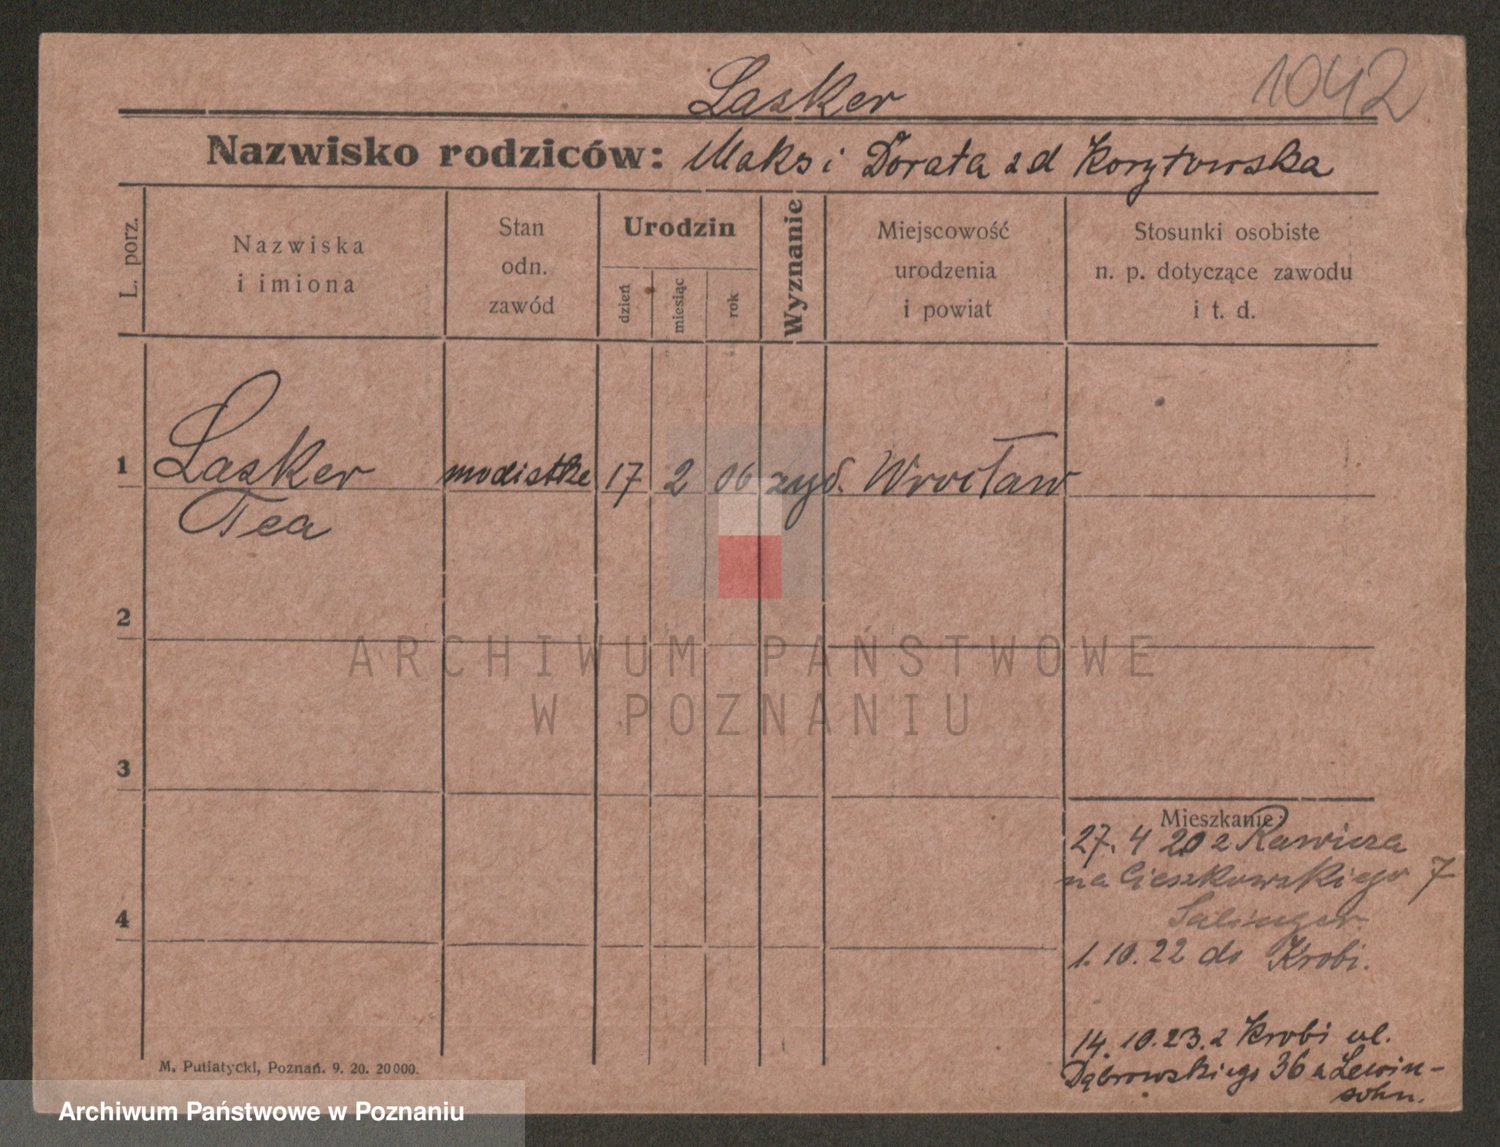 1042
Lasker
Nazwisko rodziców: Maks i Dorata z d Korytowska
L. porz.
Nazwiska
i imiona
Stan
odn.
zawód
Urodzin
dzień
miesiąc
rok
Wyznanie
Miejscowość
urodzenia
i powiat
Stosunki osobiste
n. p. dotyczące zawodu
i t. d.
1 Lasker modistke 17 2 06 żyd. Wrocław
Tea
2
3
4
Mieszkanie:
27. 4 20 z Rawicza
na Cieszkowskiego 7
Salinger
1. 10. 22 do Krobi.
14. 10. 23. z Krobi ul.
Dąbrowskiego 36 a Lewin-
sohn.
M. Putiatycki, Poznań. 9. 20. 20000.
ARCHIWUM PAŃSTWOWE
W POZNANIU
Archiwum Państwowe w Poznaniu